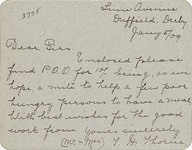 3775
Lime Avenue
Duffield, Derby.
Jany 5/09
Dear Sirs
Enclosed please
find P.O.O for 10/- being, as we
hope, a mite to help a few poor
hungry persons to have a meal
With best wishes for the good
work from Yours sincerely
(Mr & Mrs) T. H. Thorne